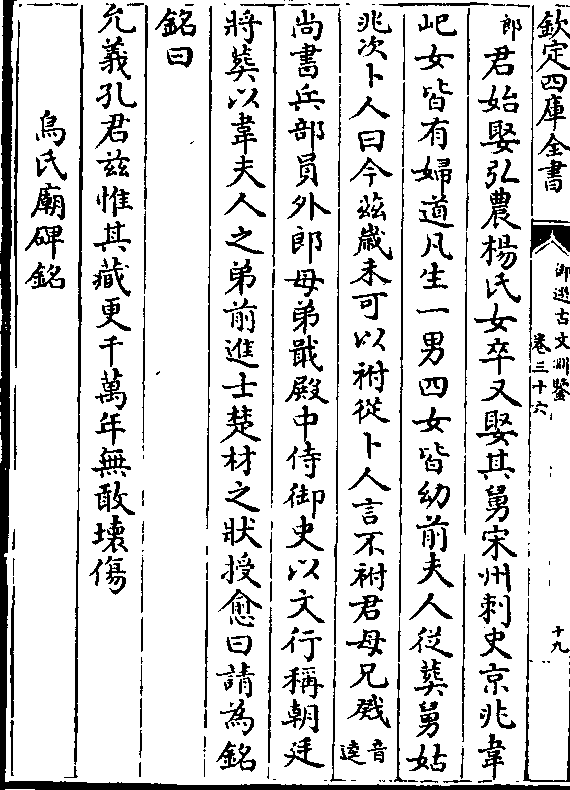 欽定四庫全書
御選古文淵鑒
卷三十六
十九
郎君始娶弘農楊氏女卒又娶其舅宋州刺史京兆韋
屺女皆有婦道凡生一男四女皆幼前夫人從葬舅姑
兆次卜人曰今茲歲未可以祔從卜人言不祔君母兄戣音逵
尚書兵部員外郎母弟戢殿中侍御史以文行稱朝廷
將葬以韋夫人之弟前進士楚材之狀授愈曰請為銘
銘曰
允義孔君茲惟其藏更千萬年無敢壞傷
烏氏廟碑銘